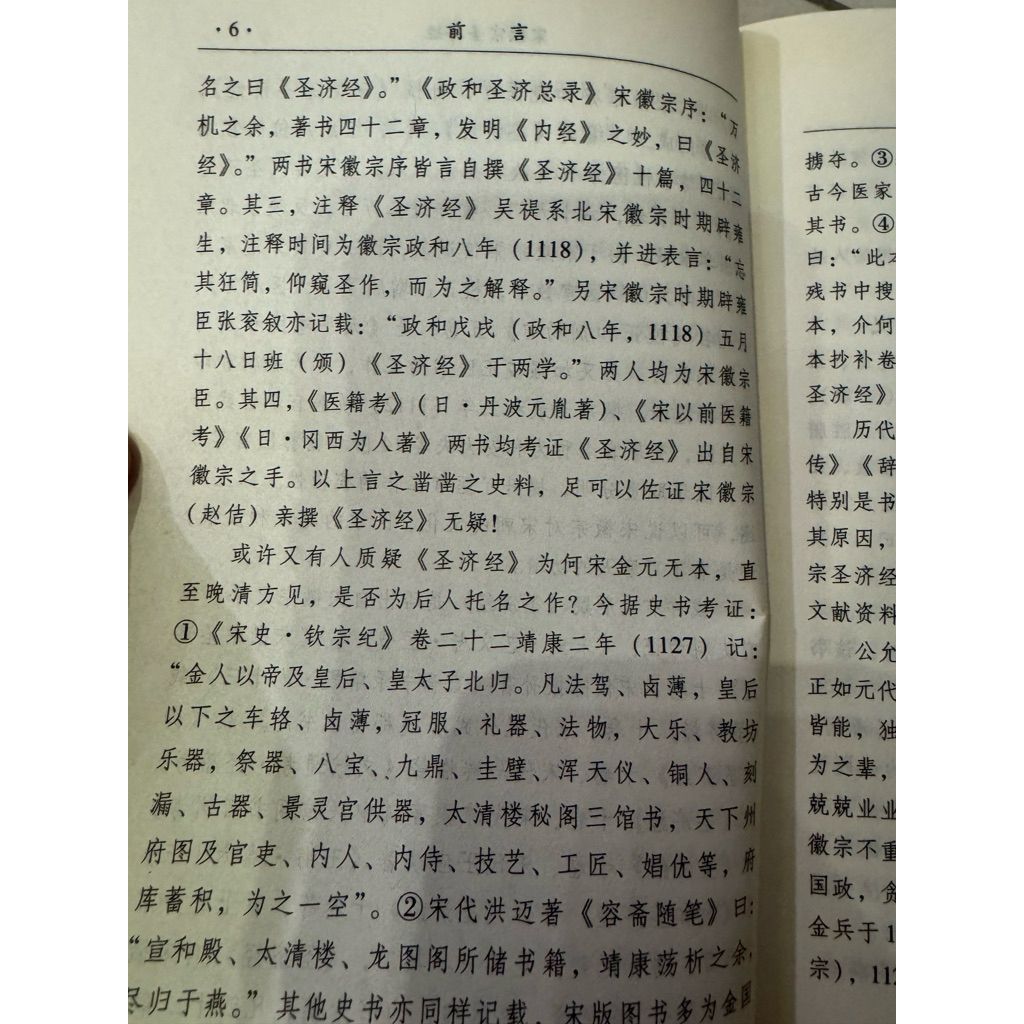 ·6· 前言
名之曰《圣济经》。”《政和圣济总录》宋徽宗序：“万
机之余，著书四十二章，发明《内经》之妙，曰《圣济
经》。”两书宋徽宗序皆言自撰《圣济经》十篇，四十二
章。其三，注释《圣济经》吴禔系北宋徽宗时期辟雍
生，注释时间为徽宗政和八年（1118），并进表言：“忘
其狂简，仰窥圣作，而为之解释。”另宋徽宗时期辟雍
臣张衮叙亦记载：“政和戊戌（政和八年，1118）五月
十八日班（颁）《圣济经》于两学。”两人均为宋徽宗
臣。其四，《医籍考》（日·丹波元胤著）、《宋以前医籍
考》《日·冈西为人著》两书均考证《圣济经》出自宋
徽宗之手。以上言之凿凿之史料，足可以佐证宋徽宗
（赵佶）亲撰《圣济经》无疑！
或许又有人质疑《圣济经》为何宋金元无本，直
至晚清方见，是否为后人托名之作？今据史书考证：
①《宋史·钦宗纪》卷二十二靖康二年（1127）记：
“金人以帝及皇后、皇太子北归。凡法驾、卤薄，皇后
以下之车辂、卤薄，冠服、礼器、法物，大乐、教坊
乐器，祭器、八宝、九鼎、圭璧、浑天仪、铜人、刻
漏、古器、景灵宫供器，太清楼秘阁三馆书，天下州
府图及官吏、内人、内侍、技艺、工匠、娼优等，府
库蓄积，为之一空”。②宋代洪迈著《容斋随笔》曰：
“宣和殿、太清楼、龙图阁所储书籍，靖康荡析之余，
尽归于燕。”其他史书亦同样记载，宋版图书多为金国
掳夺。③
古今医家
其书。④
曰：“此本
残书中搜
本，介何
本抄补卷
圣济经》
历代
传》《辞
特别是书
其原因，
宗圣济经
文献资料
公允
正如元代
皆能，独
为之辈，
兢兢业业
徽宗不重
国政，贪
金兵于1
宗），112